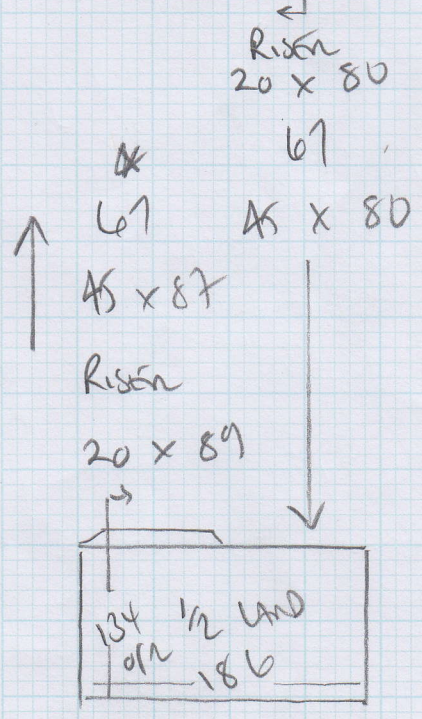 RISER
20 x 80
67
45 x 80
67
45 x 87
RISER
20 x 89
134 1/2 LAND
O/R
186